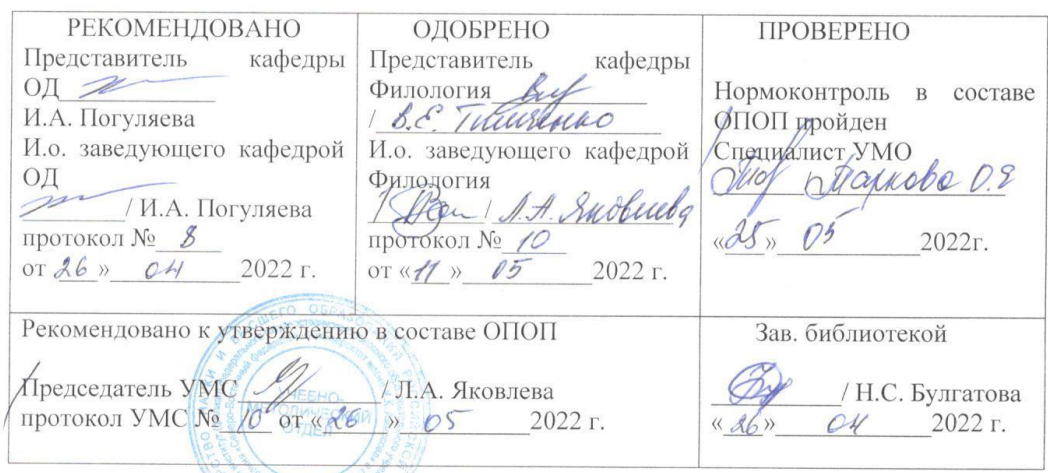 РЕКОМЕНДОВАНО
Представитель кафедры
ОД
И.А. Погуляева
И.о. заведующего кафедрой
ОД
/ И.А. Погуляева
протокол № 8
от 26 » 04 2022 г.
ОДОБРЕНО
Представитель кафедры
Филология
/ В.Е. Тимченко
И.о. заведующего кафедрой
Филология
/ / Л.А. Яковлева
протокол № 10
от « 11 » 05 2022 г.
ПРОВЕРЕНО
Нормоконтроль в составе
ОПОП пройден
Специалист УМО
/ О.Е
«25» 05 2022г.
Рекомендовано к утверждению в составе ОПОП
Председатель УМС / Л.А. Яковлева
протокол УМС № 10 от « 26 » 05 2022 г.
Зав. библиотекой
/ Н.С. Булгатова
« 26 » 04 2022 г.
УЧЕБНО-
МЕТОДИЧЕСКИЙ
ОТДЕЛ